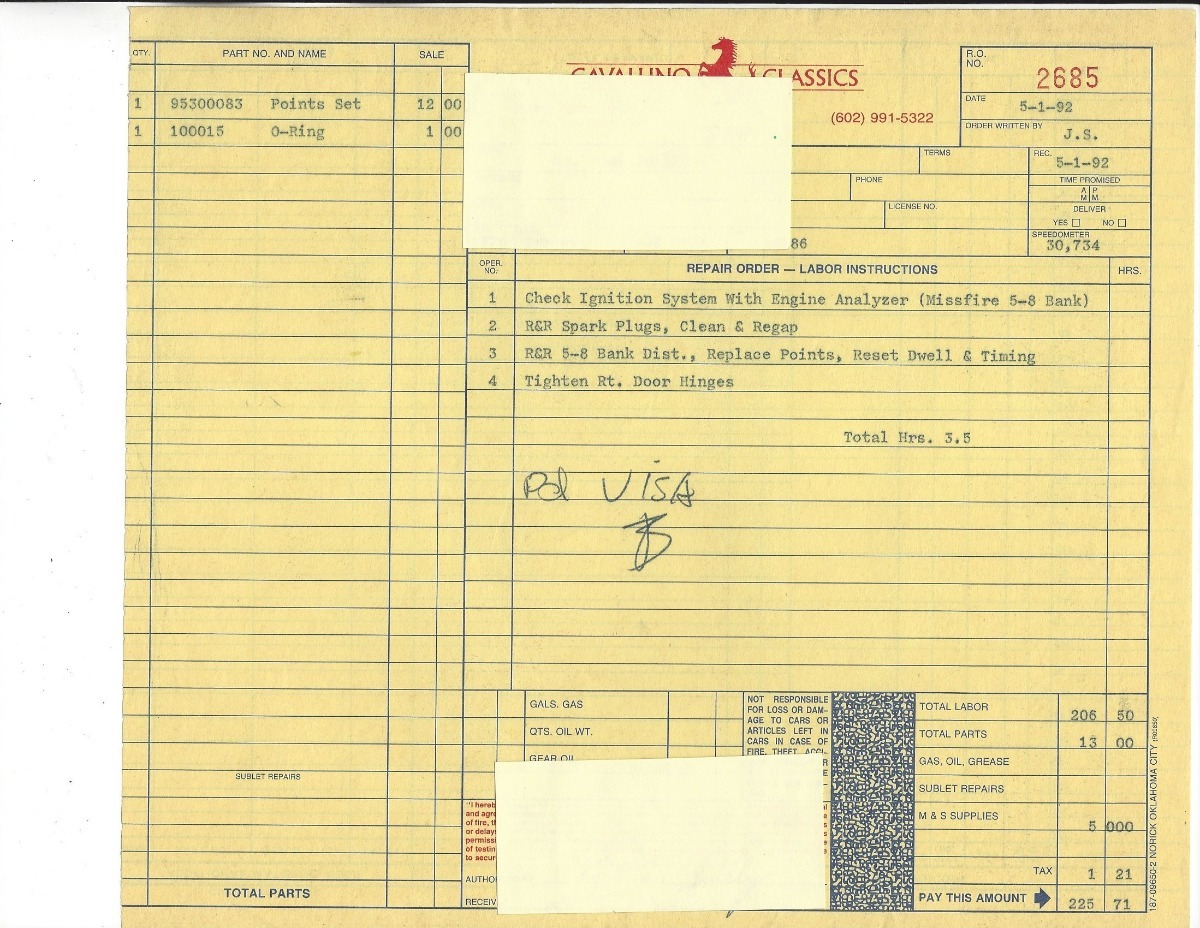 CAVALLINO CLASSICS
(602) 991-5322
R.O. NO. 2685
DATE 5-1-92
ORDER WRITTEN BY J.S.
TERMS
REC. 5-1-92
PHONE
TIME PROMISED
A M P M
LICENSE NO.
DELIVER
YES NO
SPEEDOMETER
30,734
86
QTY. PART NO. AND NAME SALE
1 95300083 Points Set 12 00
1 100015 O-Ring 1 00
SUBLET REPAIRS
TOTAL PARTS
OPER. NO. REPAIR ORDER — LABOR INSTRUCTIONS HRS.
1 Check Ignition System With Engine Analyzer (Missfire 5-8 Bank)
2 R&R Spark Plugs, Clean & Regap
3 R&R 5-8 Bank Dist., Replace Points, Reset Dwell & Timing
4 Tighten Rt. Door Hinges
Total Hrs. 3.5
Pd VISA
GALS. GAS
QTS. OIL WT.
GEAR OIL
NOT RESPONSIBLE
FOR LOSS OR DAM-
AGE TO CARS OR
ARTICLES LEFT IN
CARS IN CASE OF
FIRE, THEFT
"I hereb
and agre
of fire, t
or delays
permiss
of testin
to secur
AUTHO
RECEIV
TOTAL LABOR 206 50
TOTAL PARTS 13 00
GAS, OIL, GREASE
SUBLET REPAIRS
M & S SUPPLIES 5 000
TAX 1 21
PAY THIS AMOUNT 225 71
187-09650-2 NORICK OKLAHOMA CITY